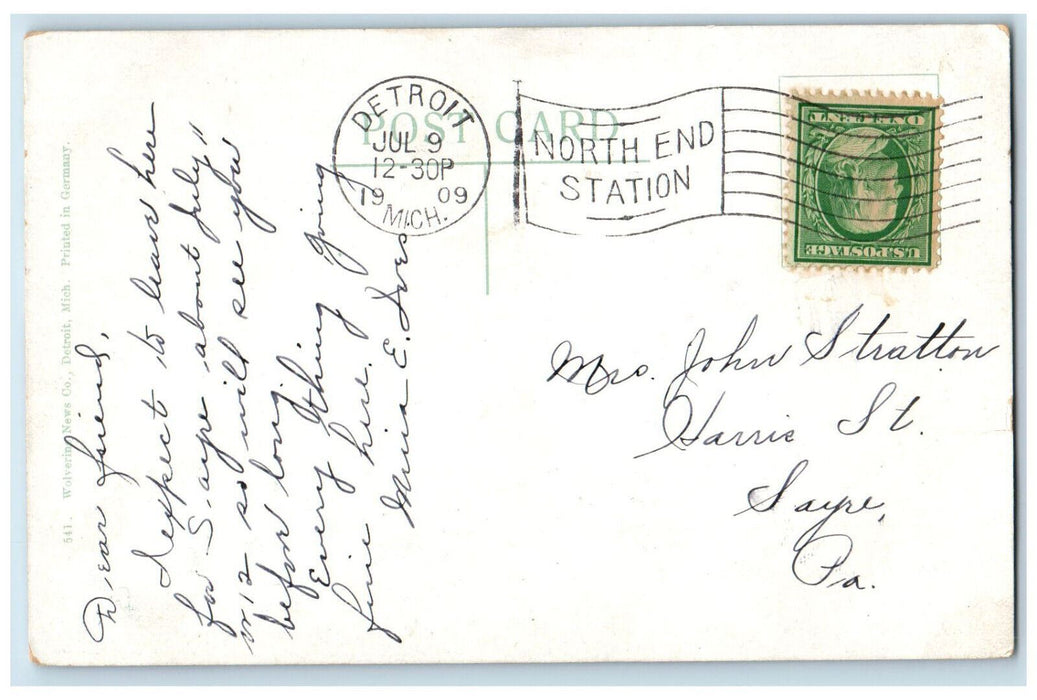 541. Wolverine News Co., Detroit, Mich. Printed in Germany.
POST CARD
DETROIT
JUL 9
12-30P
19 09
MICH.
NORTH END
STATION
ONE CENT
U.S. POSTAGE
Dear friend,
I expect to leave here
for Sayre about July 11
or 12 so will see you
before long
Every thing going
fine here.
Mina E. Ives
Mrs. John Stratton
Harris St.
Sayre,
Pa.